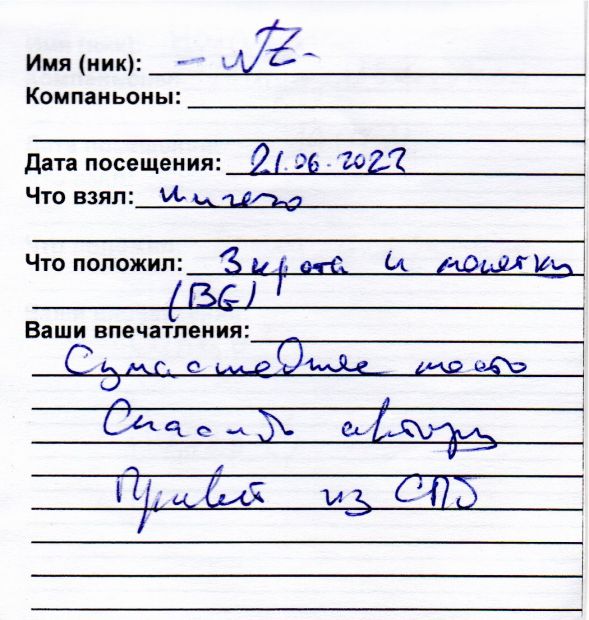 Имя (ник): -NZ-
Компаньоны:
Дата посещения: 21.06.2022
Что взял: ничего
Что положил: Зверота и монетку
(BG)
Ваши впечатления:
Сумасшедшее место
Спасибо автору
Привет из СПб